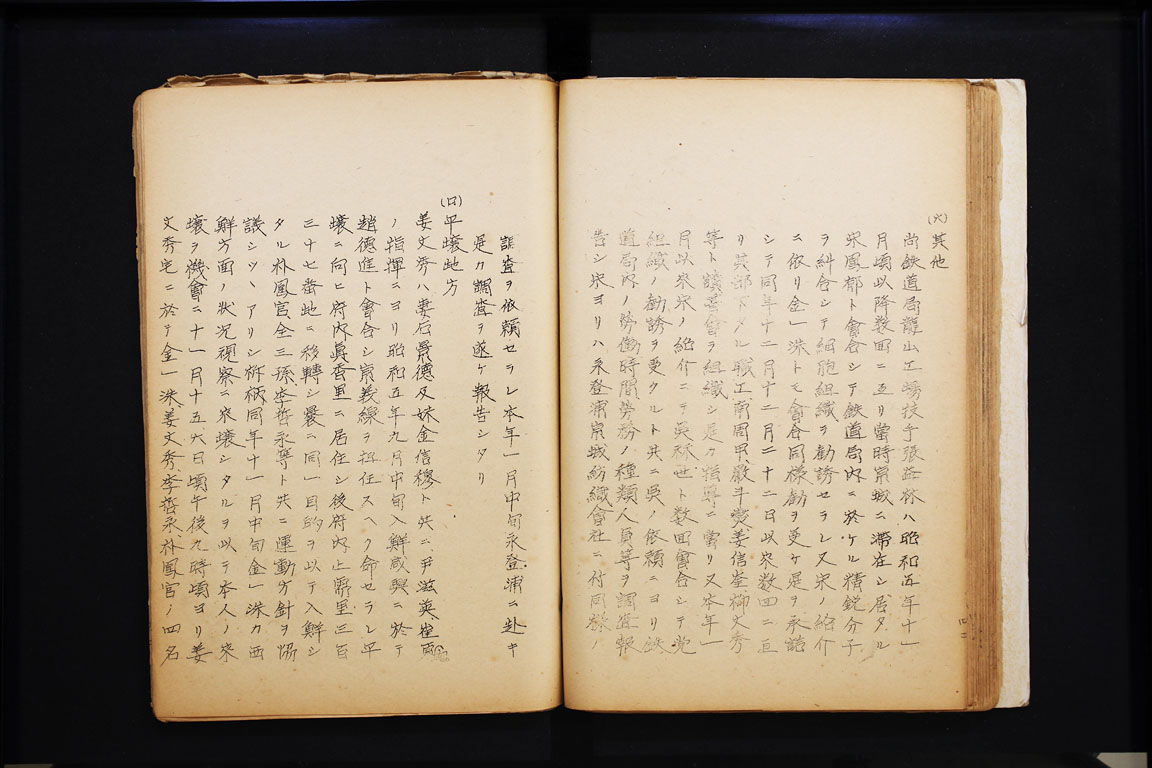 (六)其他
尚鉄道局龍山工場技手張益林ハ昭和五年十一
月頃以降数回ニ亘リ當時京城ニ滞在シ居タル
宋鳳郁ト會合シテ鉄道局内ニ於ケル精鋭分子
ヲ糾合シテ細胞組織ヲ勧誘セラレ又宋ノ紹介
ニ依リ金一洙トモ會合同様勧ヲ受ケ是ヲ承諾
シテ同年十二月十二月二十二日以来数四ニ亘
リ其部下タル職工南周甲嚴斗燮姜信奎柳文秀
等ト讀書會ヲ組織シ是カ指導ニ當リ又本年一
月以来宋ノ紹介ニテ呉秌世ト数回會合シテ党
組織ノ勧誘ヲ受クルト共ニ呉ノ依頼ニヨリ鉄
道局内ノ労働時間労務ノ種類人員等ヲ調査報
告シ宋ヨリハ永登浦京城紡織會社ニ付同様ノ
調査ヲ依頼セラレ本年一月中旬永登浦ニ赴キ
是カ調査ヲ遂ケ報告シタリ
(ロ)平壌地方
姜文秀ハ妻石景德及妹金信穆ト共ニ尹滋英崔
ノ指揮ニヨリ昭和五年九月中旬入鮮咸興ニ於テ
趙德進ト會合シ京義線ヲ担任スヘク命セラレ平
壌ニ向ヒ府内眞香里ニ居住シ後府内上需里三百
三十七番地ニ移轉シ曩ニ同一目的ヲ以テ入鮮シ
タル朴鳳官全三孫李哲承等ト共ニ運動方針ヲ協
議シツヽアリシ折柄同年十一月中旬金一洙カ西
鮮方面ノ状况視察ニ来壌シタルヲ以テ本人ノ来
壌ヲ機會ニ十一月十五六日頃午後九時頃ヨリ姜
文秀宅ニ於テ金一洙姜文秀李哲承朴鳳官ノ四名